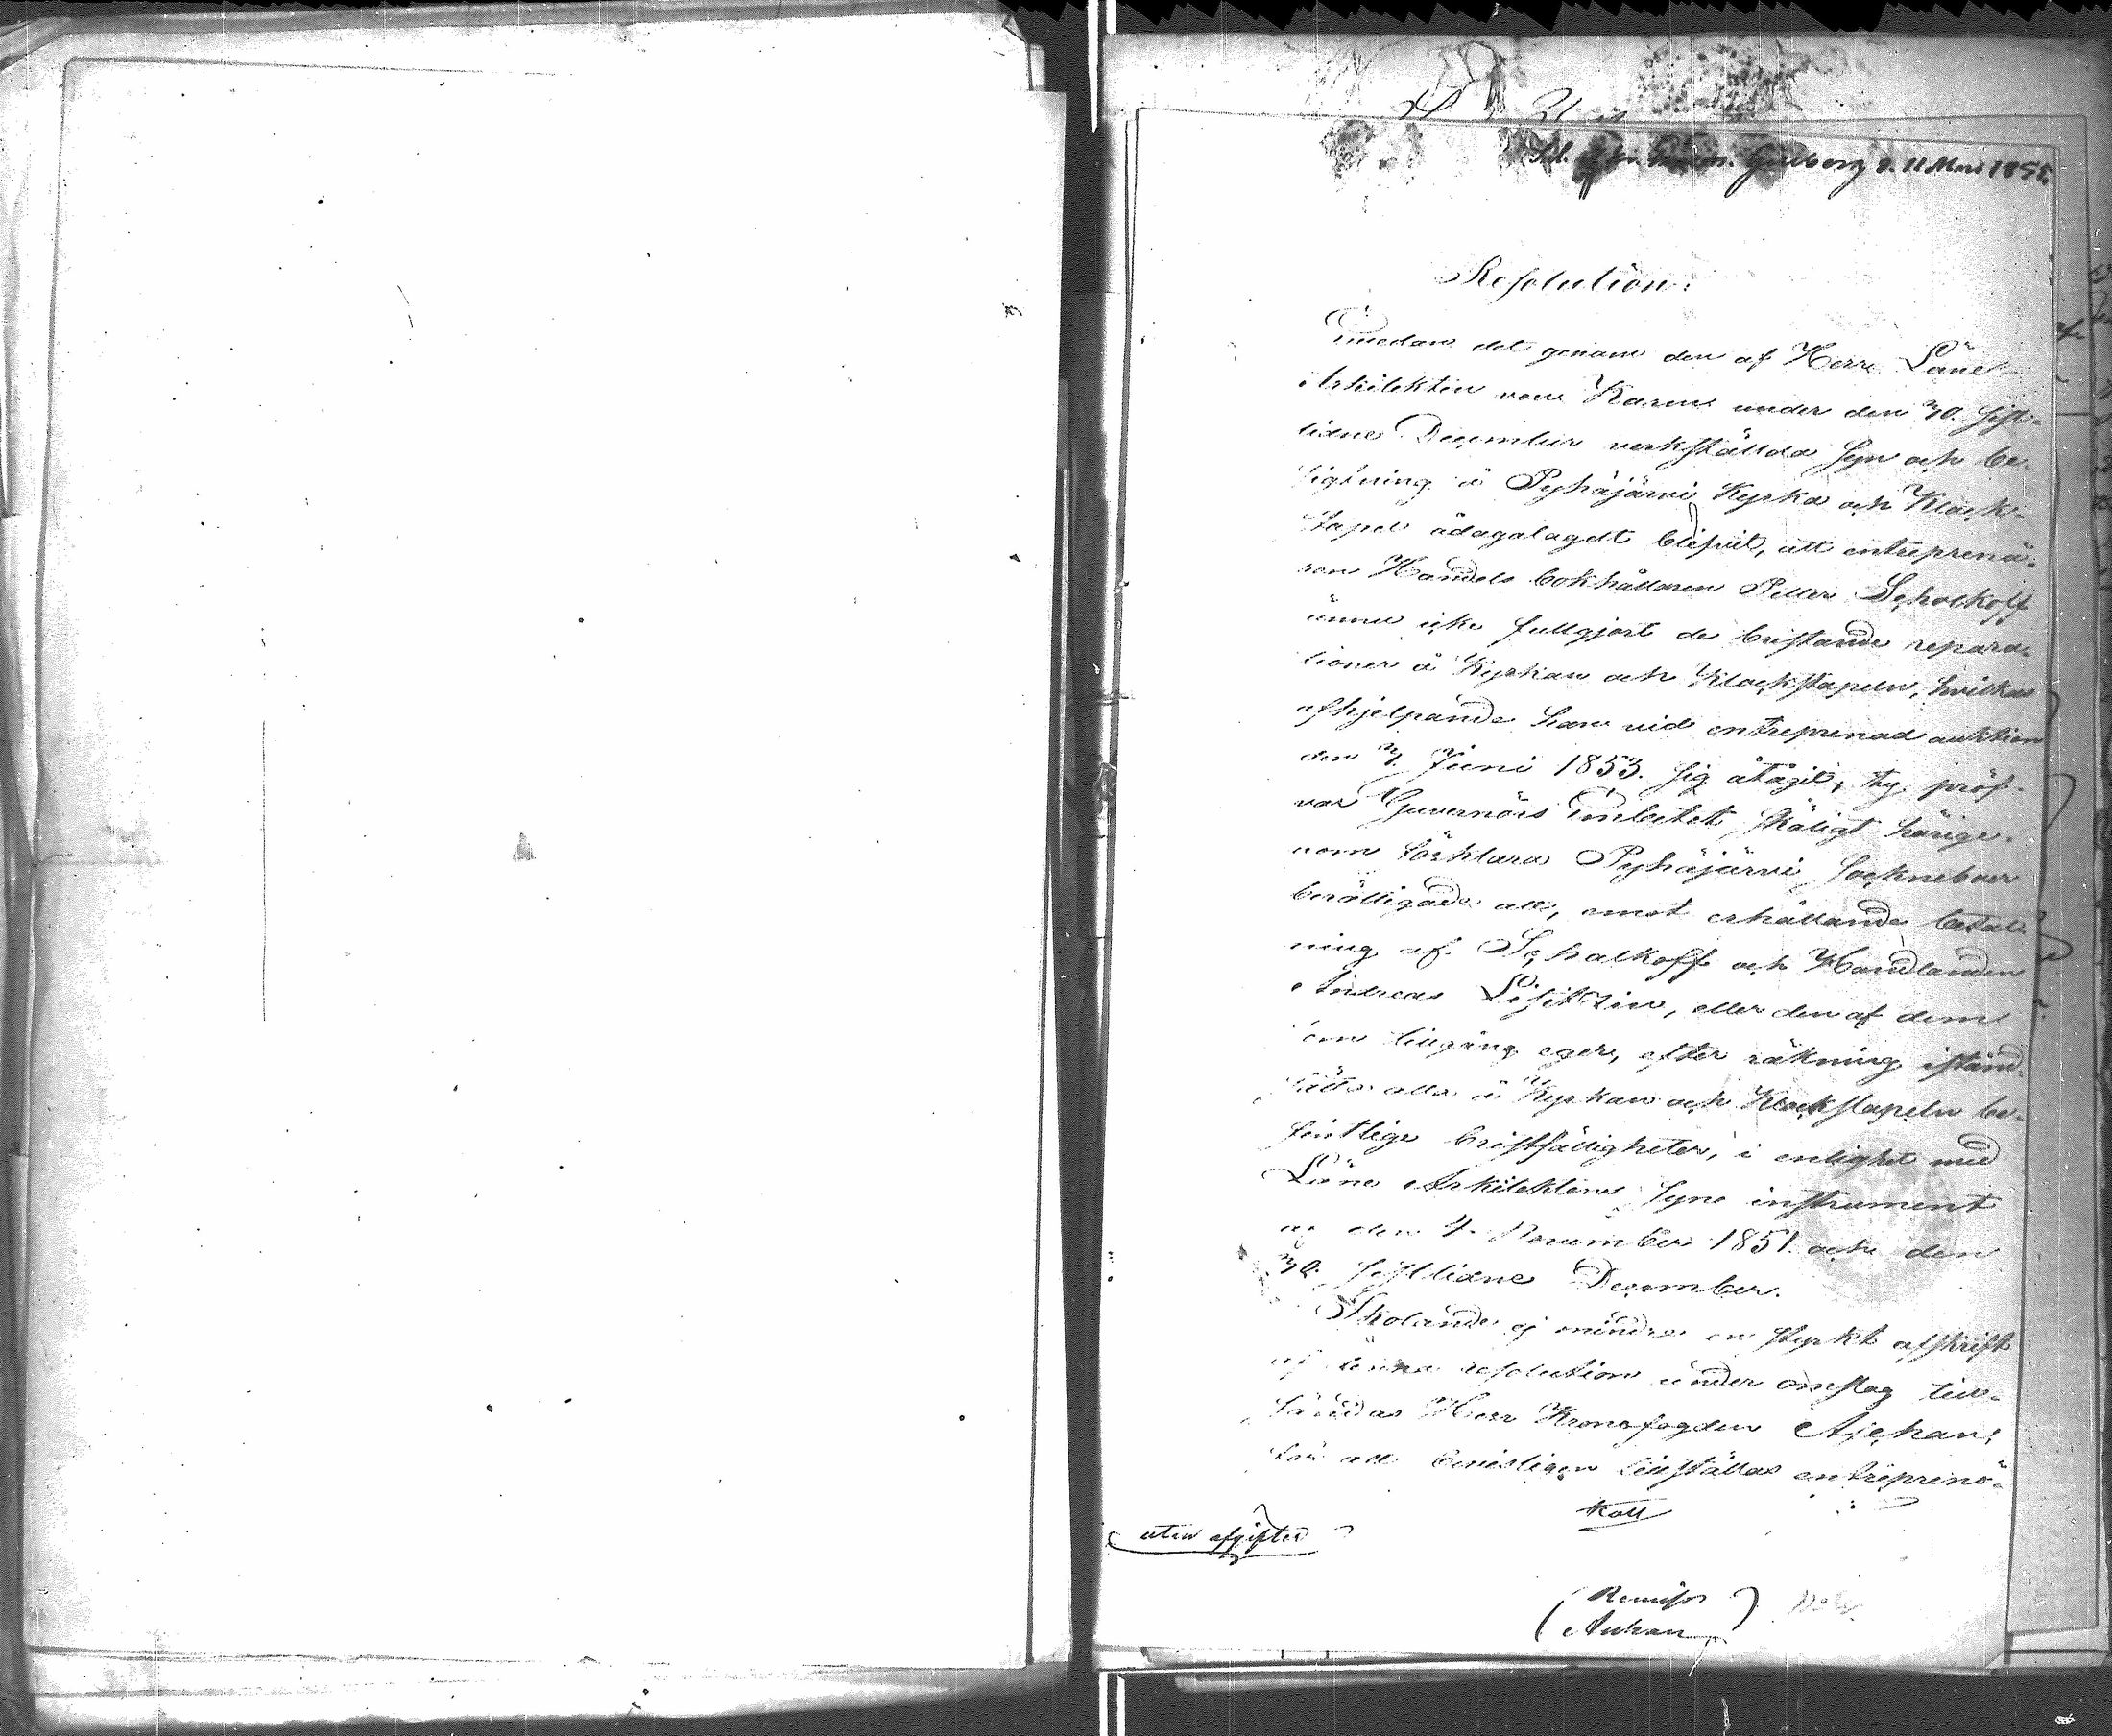 d. 11 Mars 1855.
Resolution:
Emedan det genom den af Herr Läne
Arkitekten von Karm under den 30. sist-
lidne December verkställda syn och be-
sigtning å Pyhäjärvi Kyrka och Klock-
stapel ådagalagdt blifvit, att entreprenö-
ren Handels bokhållaren Petter Scholkoff
ännu icke fullgjort de bristande repara-
tioner å Kyrkan och Klockstapeln, hvilkas
afhjelpande han vid entreprenad auktion
den 7. Juni 1853. sig åtagit; ty pröf-
var Guvernörs Embetet skäligt härige-
nom förklara Pyhäjärvi Sockneboer
berättigade att, emot erhållande betal-
ning af Schalkoff och Handlanden
Andreas Lisitzin, eller den af dem
som tillgång eger, efter räkning istånd-
sätta alla å Kyrkan och Klockstapeln be-
fintliga bristfälligheter, i enlighet med
Läne Arkitektens syne instrument
af den 4. November 1851. och den
30. sistlidne December.
Skolande ej mindre en styrkt afskrift
af denna resolution under omslag till-
sändas Herr Kronofogden
för att bevisligen tillställas entreprenö-
utan afgifter
Remiss